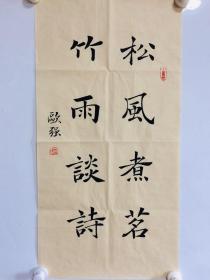 松風煮茗
竹雨談詩
歐強